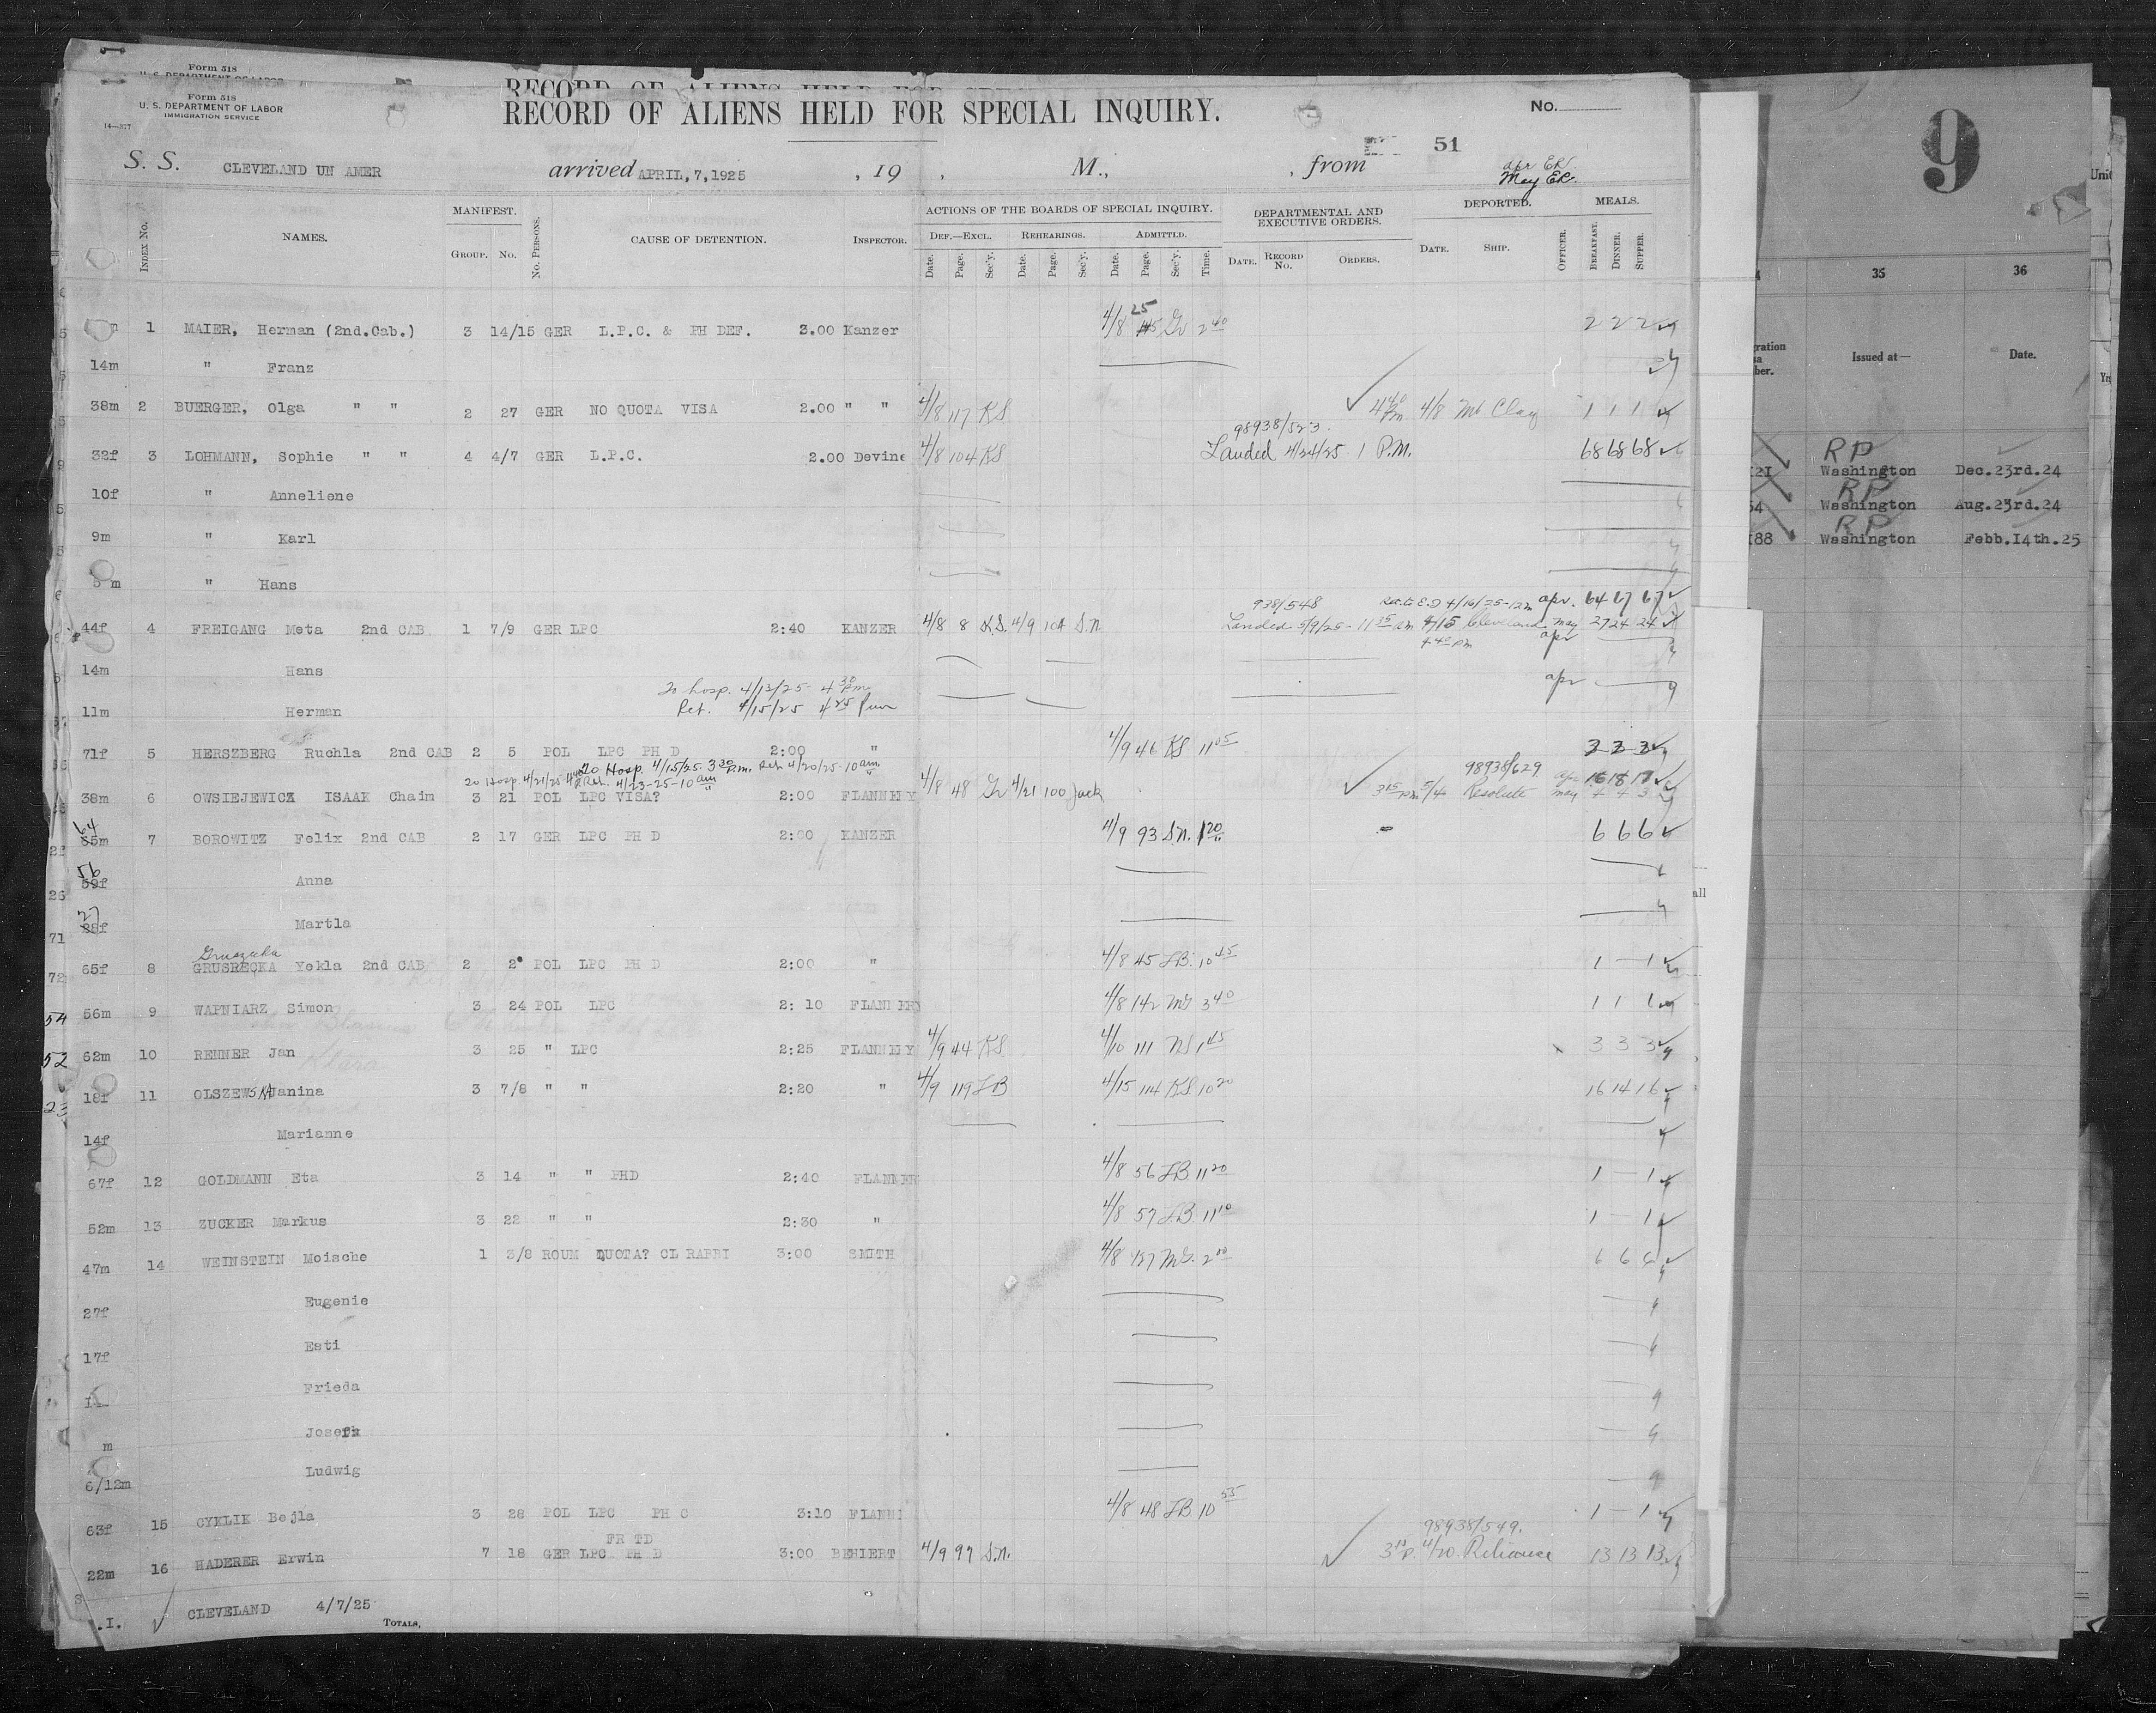 Form 518
U. S. DEPARTMENT OF LABOR
Form 518
U. S. DEPARTMENT OF LABOR
IMMIGRATION SERVICE
14—377
RECORD OF ALIENS HELD FOR SPECIAL INQUIRY.
No.
51
S. S. CLEVELAND UN AMER arrived APRIL,7,1925 , 19 , M., , from
apr ER.
May ER.
Index No. NAMES. MANIFEST. Group. No. No. Persons. CAUSE OF DETENTION. Inspector. ACTIONS OF THE BOARDS OF SPECIAL INQUIRY. DEPARTMENTAL AND EXECUTIVE ORDERS. DEPORTED. MEALS.
Def.—Excl. Rehearings. Admitted.
Date. Page. Sec'y. Date. Page. Sec'y. Date. Page. Sec'y. Time. Date. Record No. Orders. Date. Ship. Officer. Breakfast. Dinner. Supper.
1 MAIER, Herman (2nd.Cab.) 3 14/15 GER L.P.C. & PH DEF. 3.00 Kanzer 4/8 25 Gr 2 40 2 2 2
14m " Franz
38m 2 BUERGER, Olga " " 2 27 GER NO QUOTA VISA 2.00 " " 4/8 117 KS 4 40 Pm 4/8 Mt Clay 1 1 1
98938/523.
32f 3 LOHMANN, Sophie " " 4 4/7 GER L.P.C. 2.00 Devine 4/8 104 KS Landed 4/24/25 1 P.M. 68 68 68
10f " Anneliene
9m " Karl
m " Hans
938/548 4/16/25-12m apr. 64 67 67
44f 4 FREIGANG Meta 2nd CAB 1 7/9 GER LPC 2:40 KANZER 4/8 8 4/9 104 S.N. Landed 5/9/25-11 35 am 4/15 Cleveland May 27 24 24
4 40 PM apr
14m Hans
apr
To hosp. 4/13/25 4 30 Pm
Ret. 4/15/25 4 25 Pm
11m Herman
71f 5 HERSZBERG Ruchla 2nd CAB 2 5 POL LPC PH D 2:00 " 4/9 46 KS 11 05 3 3 3
To Hosp. 4/15/25-3 30 P.m. Ret 4/20/25-10 am
To Hosp. 4/21/25 Ret. 4/23-25-10 am
98938/629
38m 6 OWSIEJEWICZ ISAAK Chaim 3 21 POL LPC VISA? 2:00 FLANNERY 4/8 48 Gr 4/21 100 Jack 3 15 Pm 5/4 Resolute apr 16 18 17
May 4 4 3
64
55m 7 BOROWITZ Felix 2nd CAB 2 17 GER LPC PH D 2:00 KANZER 4/9 93 S.N. 1 20 6 6 6
56
59f Anna
27
28f Martla
Gruszecka
65f 8 GRUSRECKA Yekla 2nd CAB 2 2 POL LPC PH D 2:00 " 4/8 45 LB. 10 45 1 — 1
56m 9 WAPNIARZ Simon 3 24 POL LPC 2:10 FLANNERY 4/8 142 MG 3 40 1 1 1
62m 10 RENNER Jan 3 25 " LPC 2:25 FLANNERY 4/9 44 KS 4/10 111 NS 1 45 3 3 3
18f 11 OLSZEWSKA Janina 3 7/8 " " 2:20 " 4/9 119 LB 4/15 114 KS 10 20 16 14 16
14f Marianne
67f 12 GOLDMANN Eta 3 14 " " PHD 2:40 FLANNER 4/8 56 LB 11 20 1 — 1
52m 13 ZUCKER Markus 3 22 " " 2:30 " 4/8 57 LB. 11 10 1 — 1
47m 14 WEINSTEIN Moische 1 3/8 ROUM QUOTA? CL RABBI 3:00 SMITH 4/8 MG. 2 6 6 6
27f Eugenie
17f Esti
Frieda
m Joseph
6/12m Ludwig
63f 15 CYKLIK Bejla 3 28 POL LPC PH C 3:10 FLANN 4/8 48 LB 10 55 1 — 1
FR TD
98938/549.
22m 16 HADERER Erwin 7 18 GER LPC PH D 3:00 BEHIERT 4/9 97 S.N. 4/20 Reliance 13 13 13
CLEVELAND 4/7/25
.I. Totals,
9
Unit
35 36
Issued at— Date.
RP
121 Washington Dec.23rd.24
RP
54 Washington Aug.23rd.24
RP
188 Washington Febb.14th.25
all